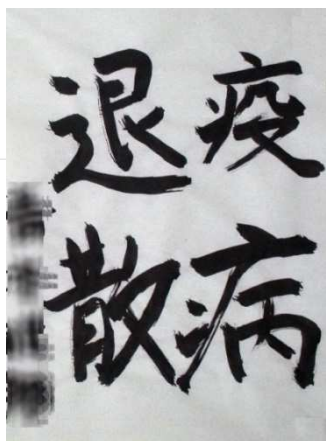 疫病
退散